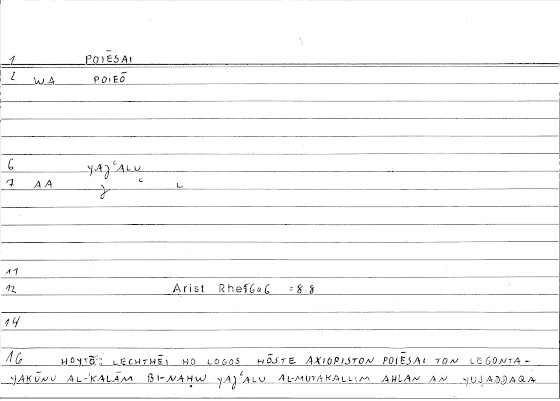 1 POIĒSAI
2 WA POIEŌ
6 YAJʿALU
7 AA J ʿ L
11
12 Arist Rhe 56a6 =8.8
14
16 HOYTŌ: LECHTHĒI HO LOGOS HŌSTE AXIOPISTON POIĒSAI TON LEGONTA-
YAKŪNU AL-KALĀM BI-NAḤW YAJʿALU AL-MUTAKALLIM AHLAN AN YUṢADDAQA